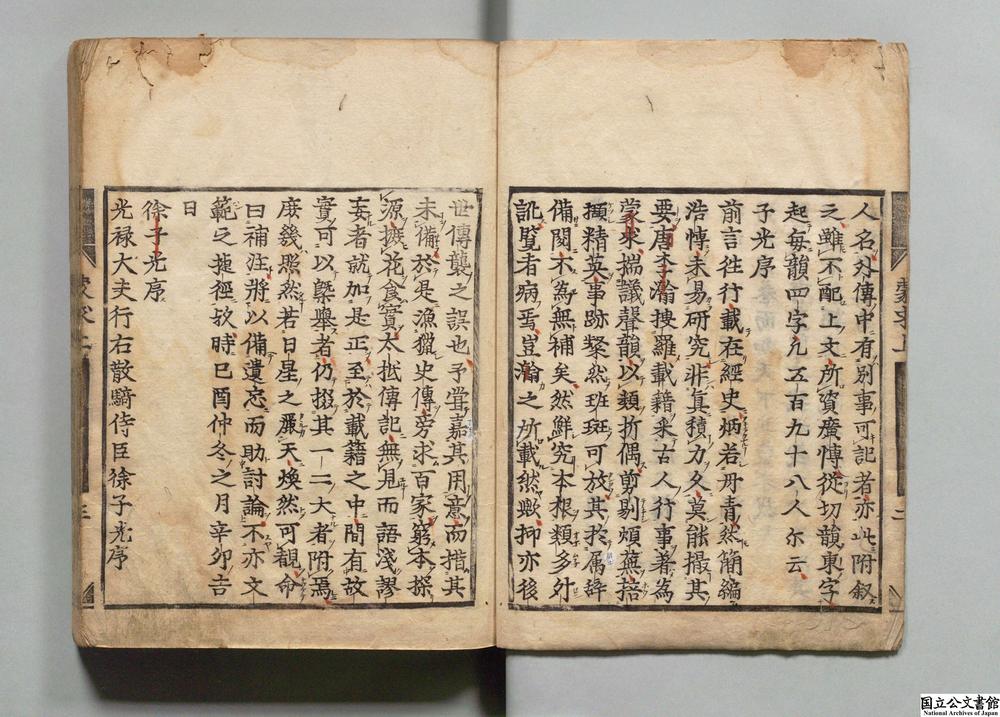 人名外傳中有別事可記者亦此附叙
之雖不配上文所資廣愽從切韻東字
起每韻四字凢五百九十八人尓云
子光序
前言徃行載在經史炳若丹青然簡編
浩愽未易研究非真積力久莫能撮其
要唐李瀚搜羅載籍采古人行事著為
蒙求揣議聲韻以類折偶剪剔煩蕪掊
擷精英事跡粲然班班可放其於属辞
備閱不為無補矣然鮮究本根類多舛
訛覽者病焉豈瀚之所載然歟抑亦後
世傳襲之誤也予甞嘉其用意而措其
未備於是漁獵史傳旁求百家窮本探
源摭花食實大抵傳記無見而語淺謬
妄者就加是正至於載籍之中間有故
實可以槩舉者仍掇其一二大者附焉
庶幾照然若日星之麗天煥然可覩命
曰補注將以備遺忘而助討論不亦文
範之捷徑欤時巳酉仲冬之月辛卯吉
日
徐子光序
光禄大夫行右散騎侍臣徐子光序
蒙求上
二
蒙求上
三
国立公文書館
National Archives of Japan